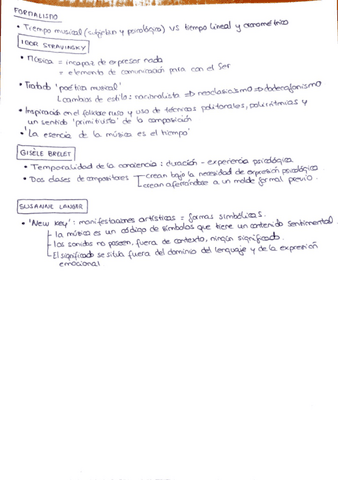 FORMALISMO
• Tiempo musical (subjetivo y psicológico) VS tiempo lineal y cronométrico
IGOR STRAVINSKY
• Música = incapaz de expresar nada
= elemento de comunicación para con el Ser
• Tratado 'poética musical'
↳ cambios de estilo: nacionalista ⇒ neoclasicismo ⇒ dodecafonismo
• Inspiración en el folklore ruso y uso de técnicas politonales, polirítmicas y
un sentido 'primitivista' de la composición
• 'La esencia de la música es el tiempo'
GISÈLE BRELET
• Temporalidad de la conciencia: duración - experiencia psicológica
• Dos clases de compositores crean bajo la necesidad de expresión psicológica
crean aferrándose a un molde formal previo.
SUSANNE LANGER
• 'New Key': manifestaciones artísticas = formas simbólicas.
la música es un código de símbolos que tiene un contenido sentimental
los sonidos no poseen, fuera de contexto, ningún significado.
El significado se sitúa fuera del dominio del lenguaje y de la expresión
emocional